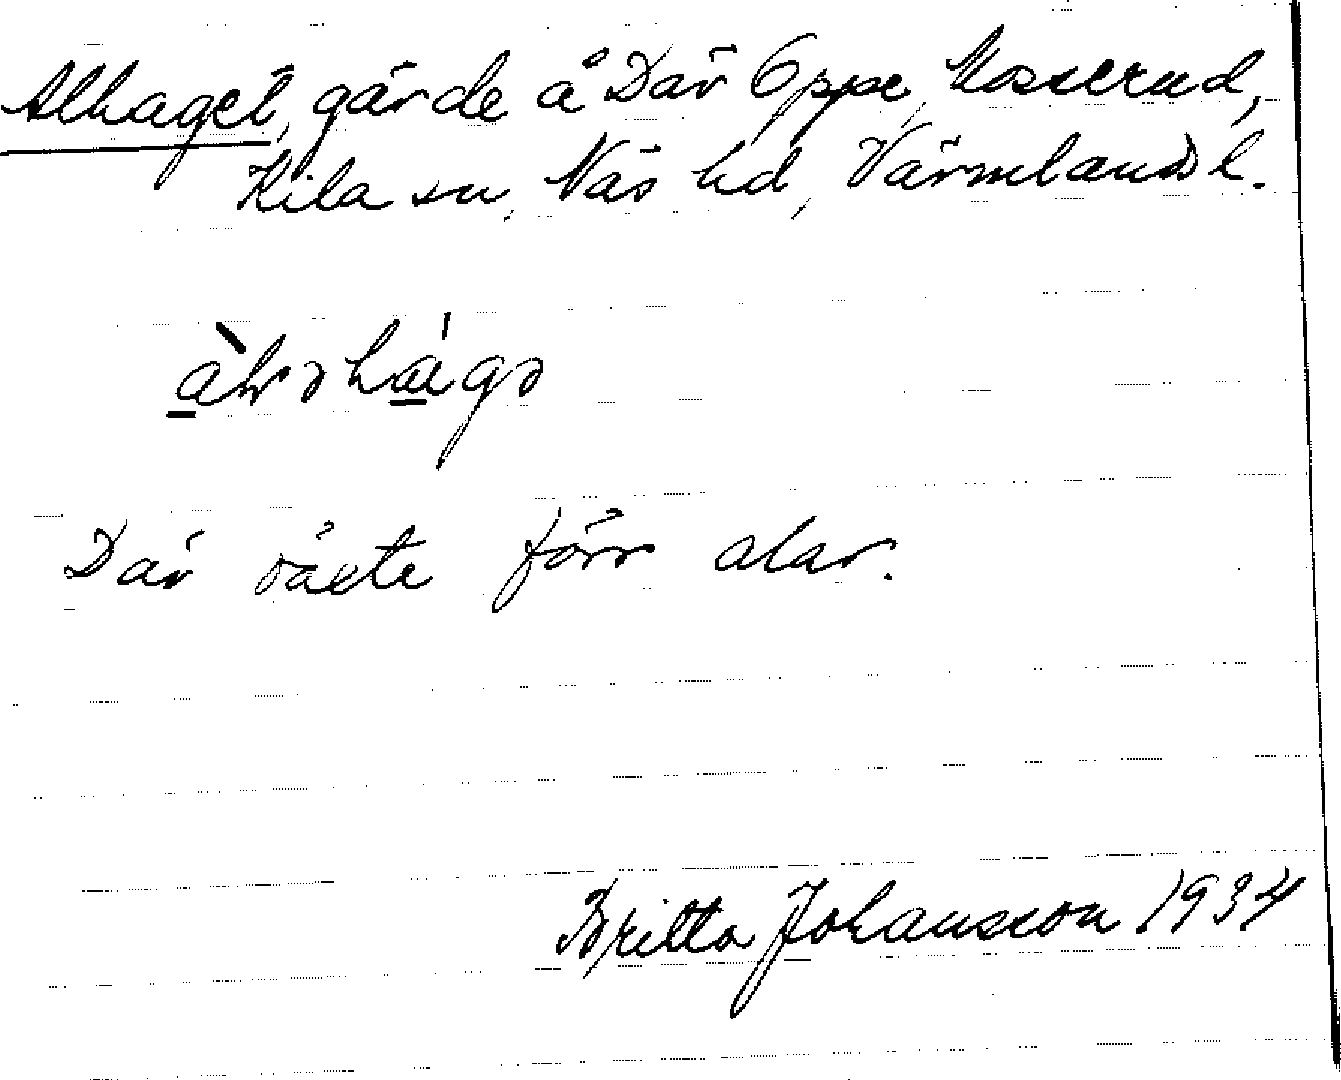 Alhaget, gärde å Där Oppe, Mosserud,
Kila sn, Näs hd, Värmlands l.
Där växte förr alar.
Britta Johansson 1934